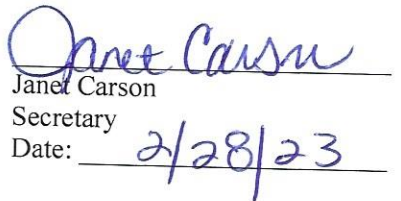 Janet Carson
Janet Carson
Secretary
Date: 2/28/23